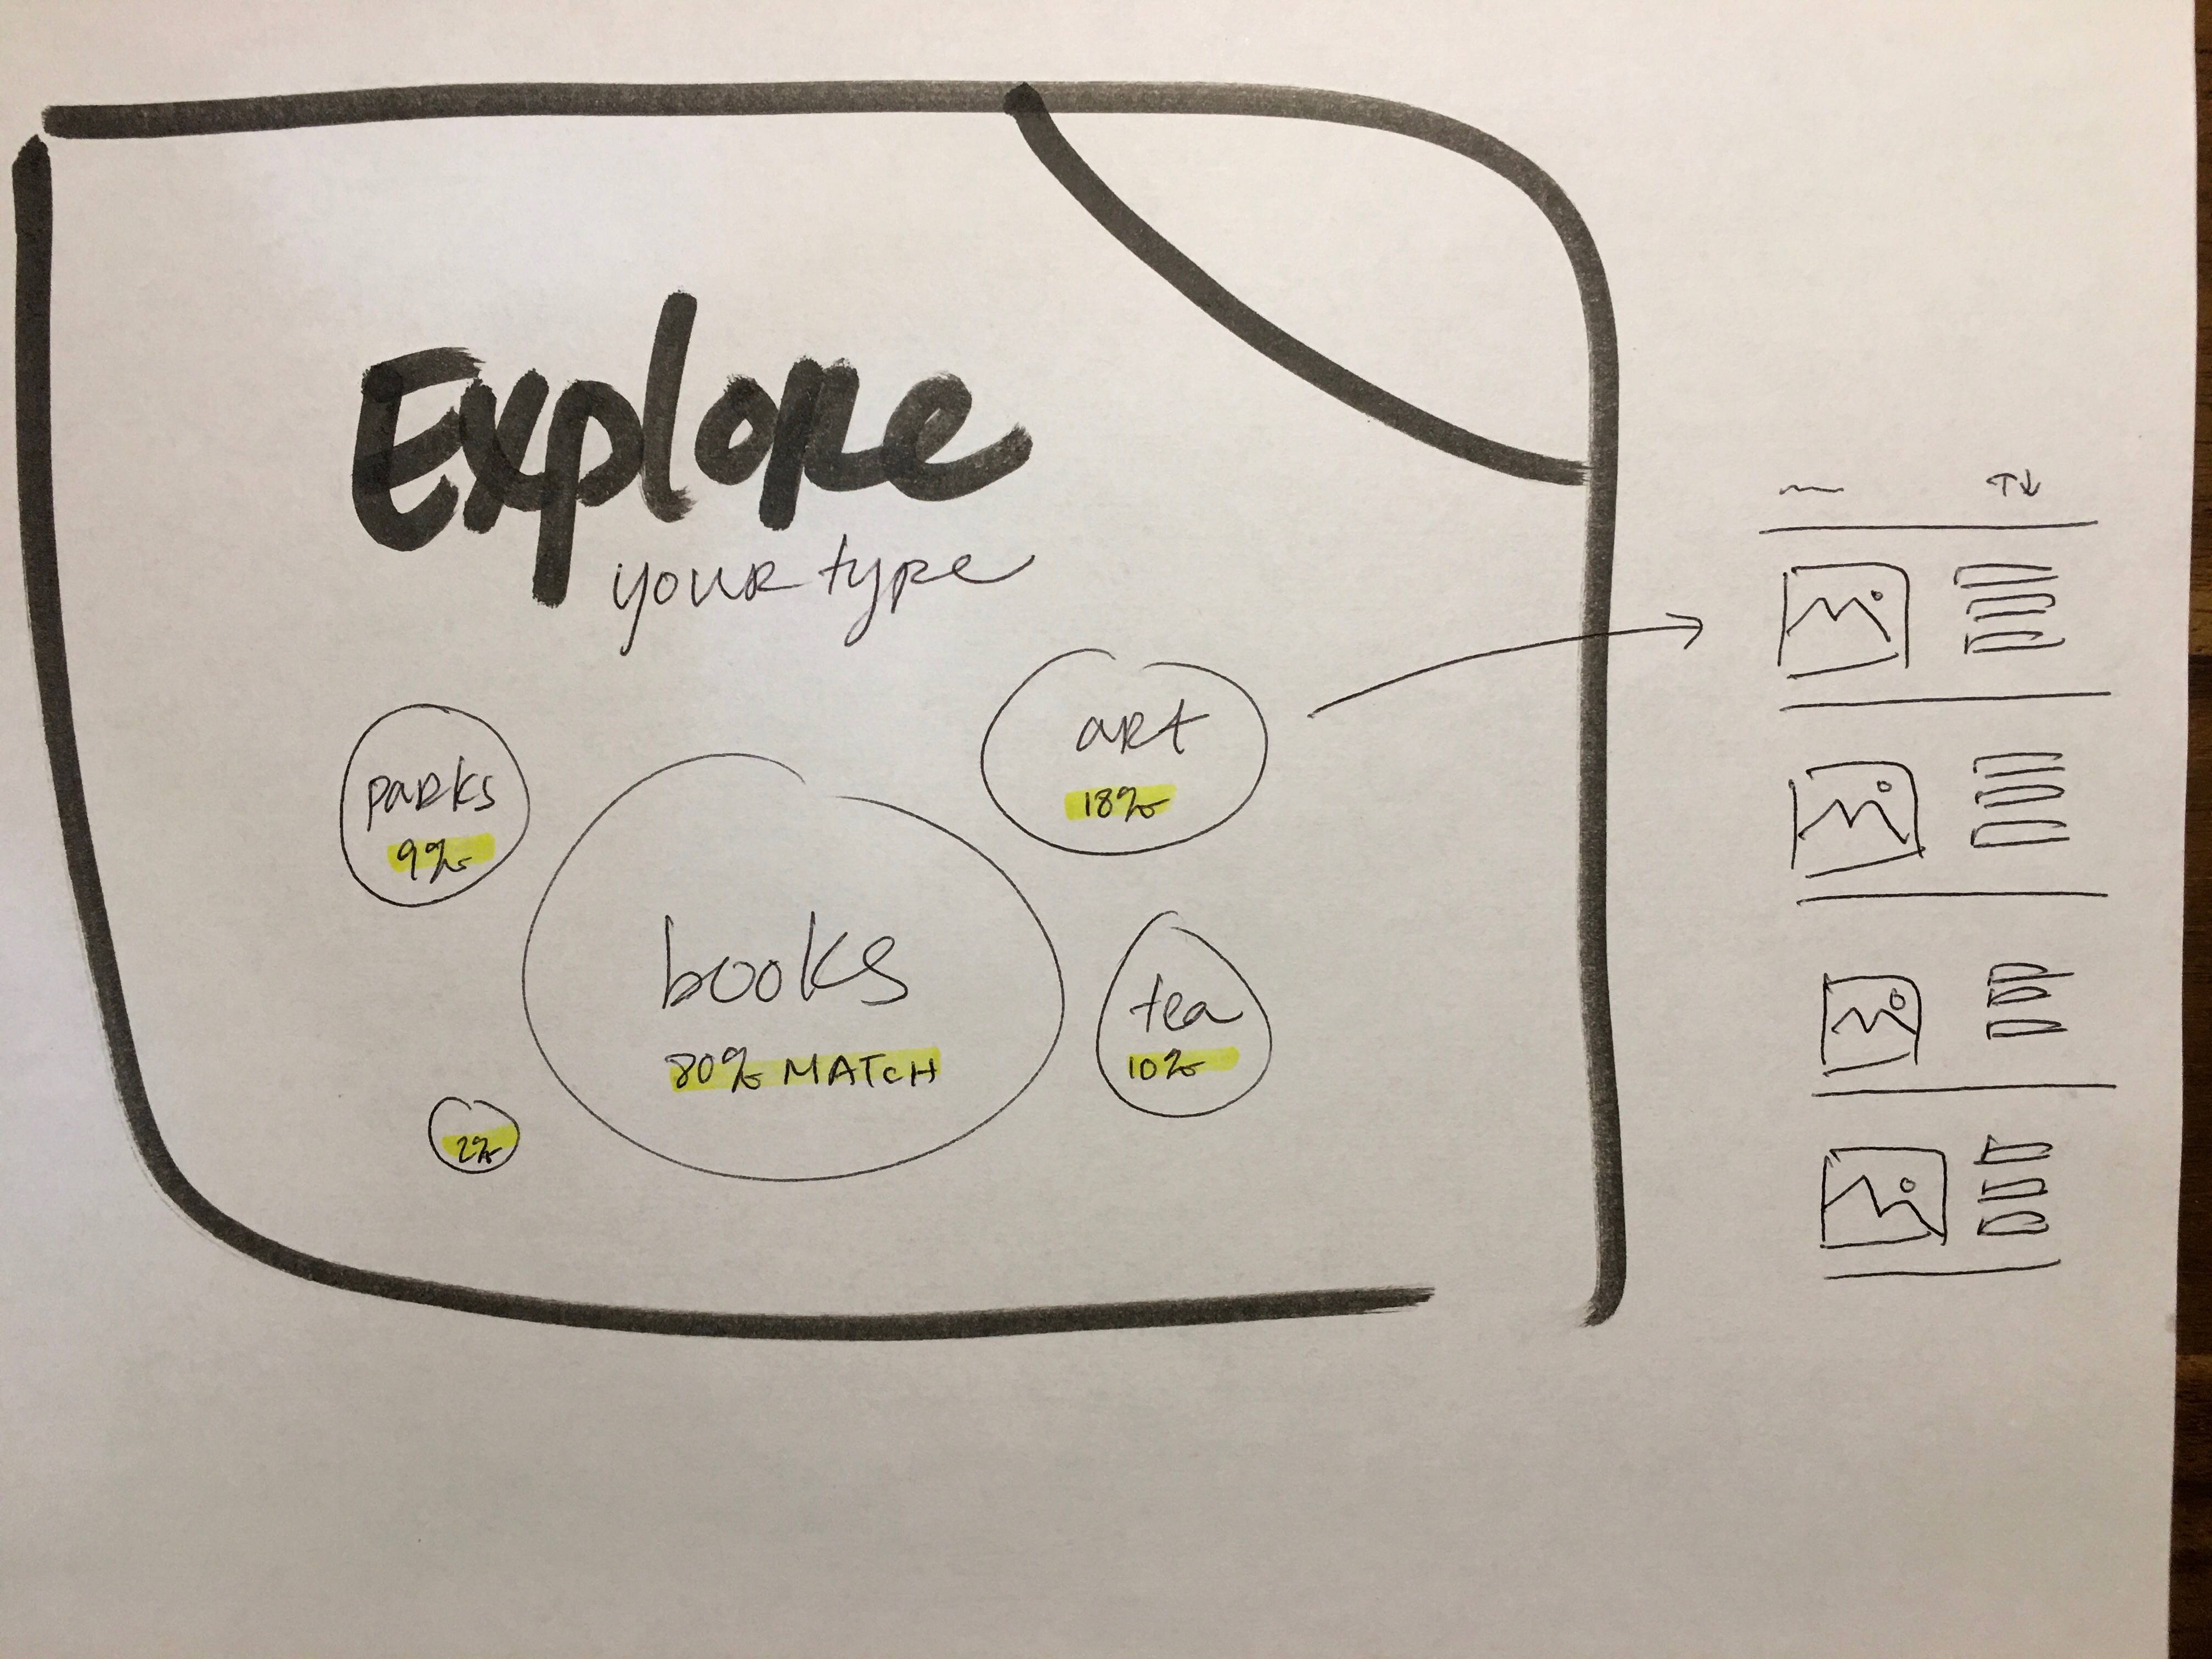 Explore
your type
parks
9%
art
18%
books
80% MATCH
tea
10%
2%